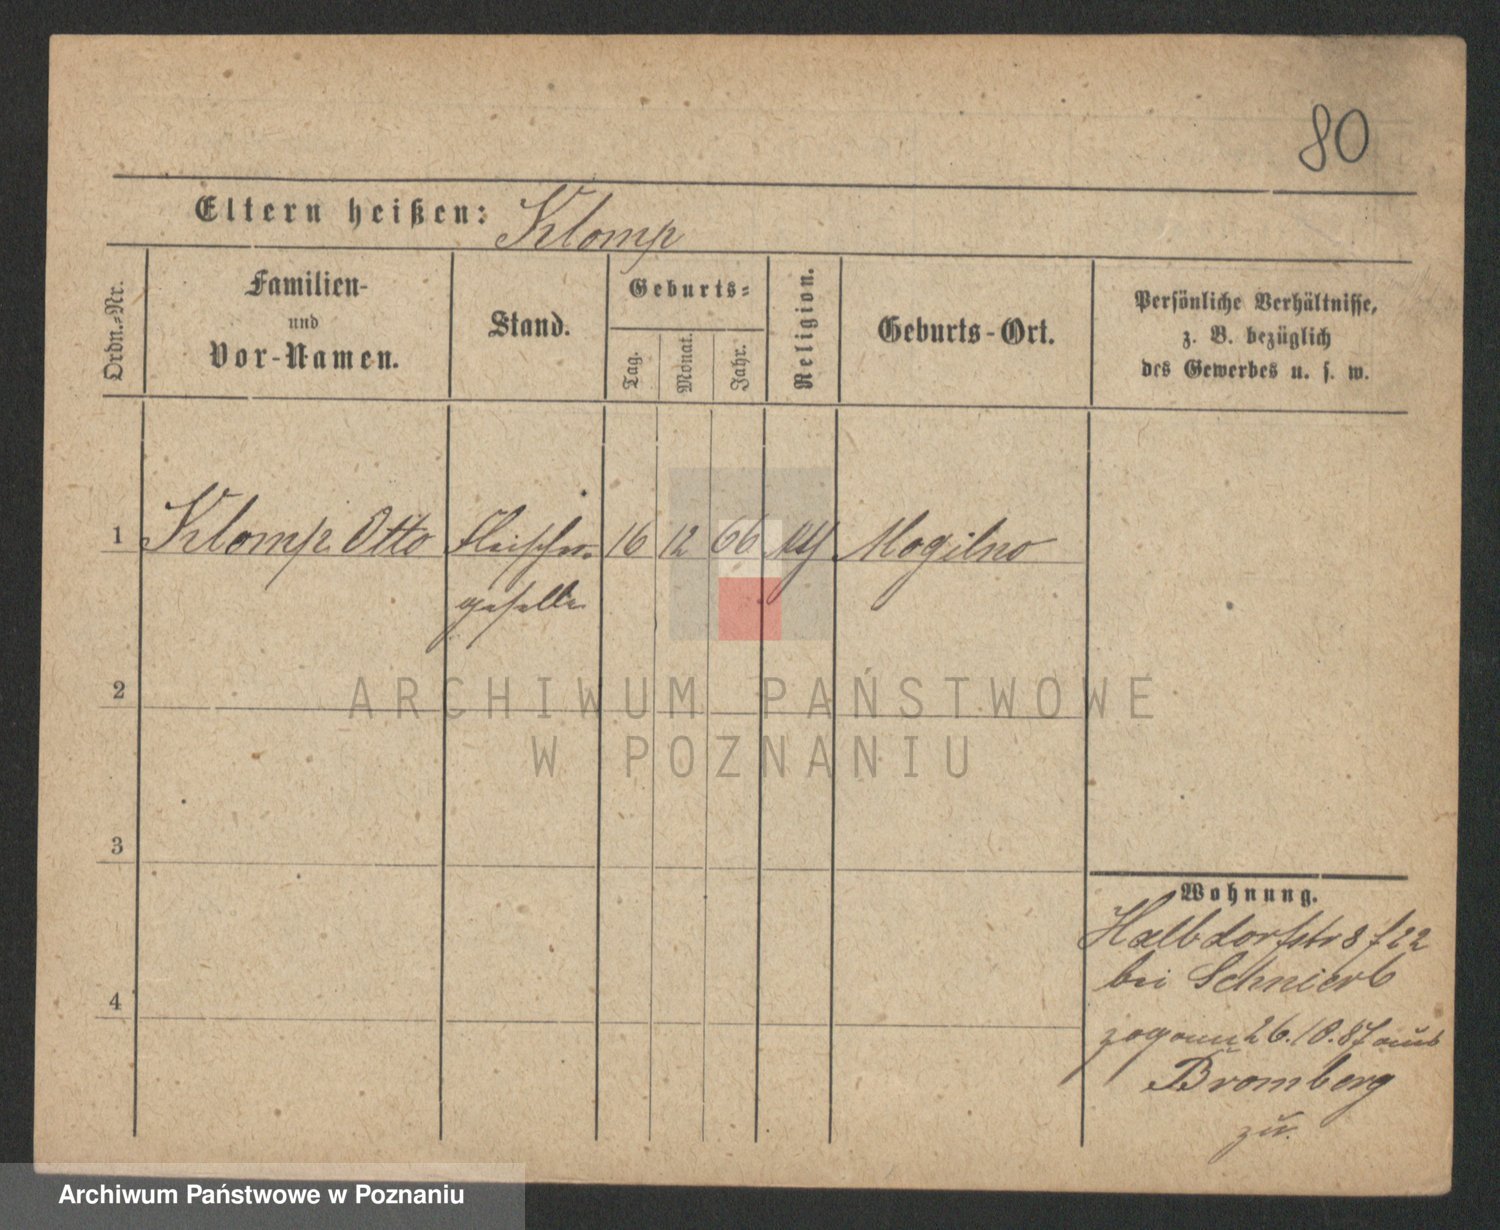 80
Eltern heißen: Klomp
Ordn.-Nr.
Familien-
und
Vor-Namen.
Stand.
Geburts-
Tag.
Monat.
Jahr.
Religion.
Geburts-Ort.
Persönliche Verhältnisse,
z. B. bezüglich
des Gewerbes u. s. w.
1 Klomp Otto Fleischer- 16 12 66 Mogilno
geselle
2
ARCHIWUM PAŃSTWOWE
W POZNANIU
3
Wohnung.
Halbdorfstr 8
bei
4
26.10.87 aus
Bromberg
zu.
Archiwum Państwowe w Poznaniu